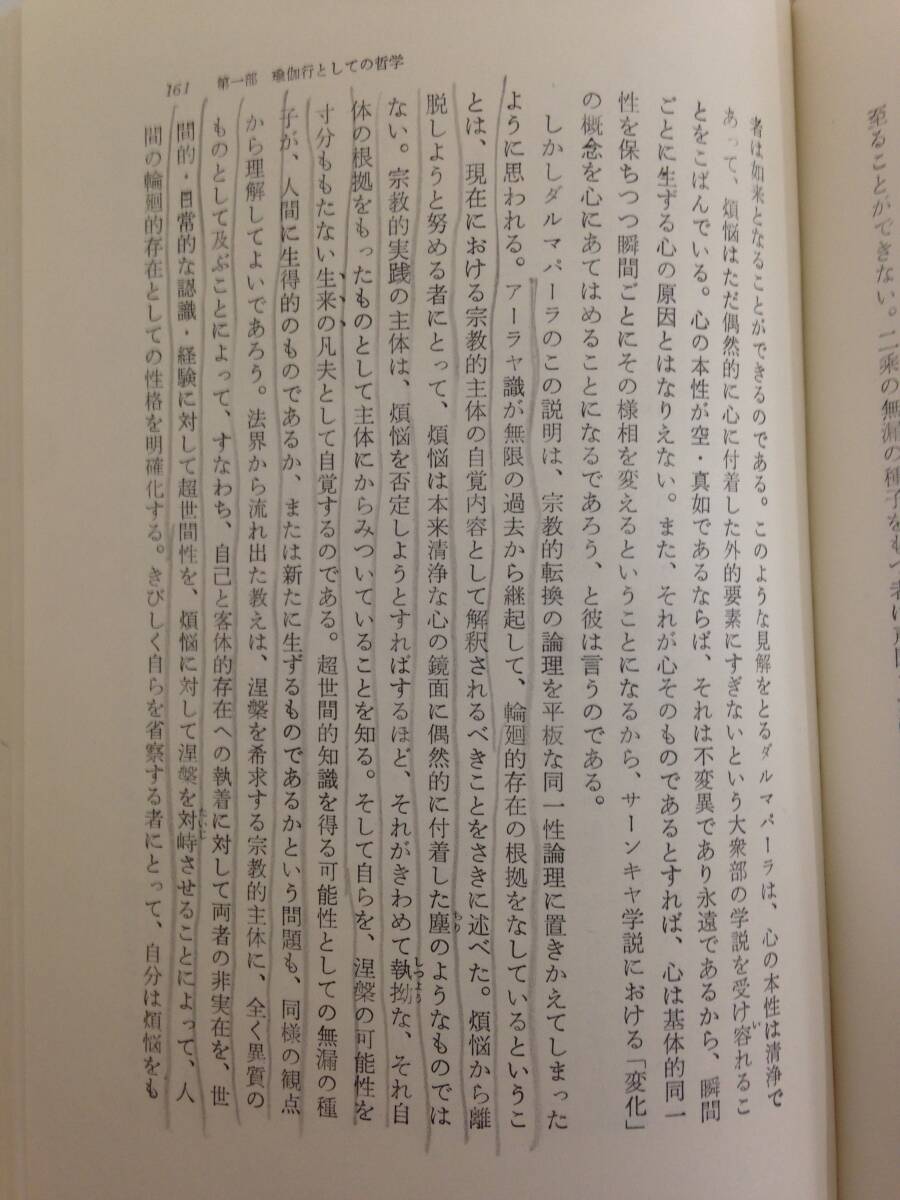 至ることができない。二乘の無漏の種子をもつ者は
者は如来となることができるのである。このような見解をとるダルマパーラは、心の本性は清浄で
あって、煩悩はただ偶然的に心に付着した外的要素にすぎないという大衆部の学説を受け容れるこ
とをこばんでいる。心の本性が空・真如であるならば、それは不変異であり永遠であるから、瞬間
ごとに生ずる心の原因とはなりえない。また、それが心そのものであるとすれば、心は基体的同一
性を保ちつつ瞬間ごとにその様相を変えるということになるから、サーンキヤ学説における「変化」
の概念を心にあてはめることになるであろう、と彼は言うのである。
しかしダルマパーラのこの説明は、宗教的転換の論理を平板な同一性論理に置きかえてしまった
ように思われる。アーラヤ識が無限の過去から継起して、輪廻的存在の根拠をなしているというこ
とは、現在における宗教的主体の自覚内容として解釈されるべきことをさきに述べた。煩悩から離
脱しようと努める者にとって、煩悩は本来清浄な心の鏡面に偶然的に付着した塵のようなものでは
ない。宗教的実践の主体は、煩悩を否定しようとすればするほど、それがきわめて執拗な、それ自
体の根拠をもったものとして主体にからみついていることを知る。そして自らを、涅槃の可能性を
寸分ももたない生来の凡夫として自覚するのである。超世間的知識を得る可能性としての無漏の種
子が、人間に生得的のものであるか、または新たに生ずるものであるかという問題も、同様の観点
から理解してよいであろう。法界から流れ出た教えは、涅槃を希求する宗教的主体に、全く異質の
ものとして及ぶことによって、すなわち、自己と客体的存在への執着に対して両者の非実在を、世
間的・日常的な認識・経験に対して超世間性を、煩悩に対して涅槃を対峙させることによって、人
間の輪廻的存在としての性格を明確化する。きびしく自らを省察する者にとって、自分は煩悩をも
161 第一部 瑜伽行としての哲学